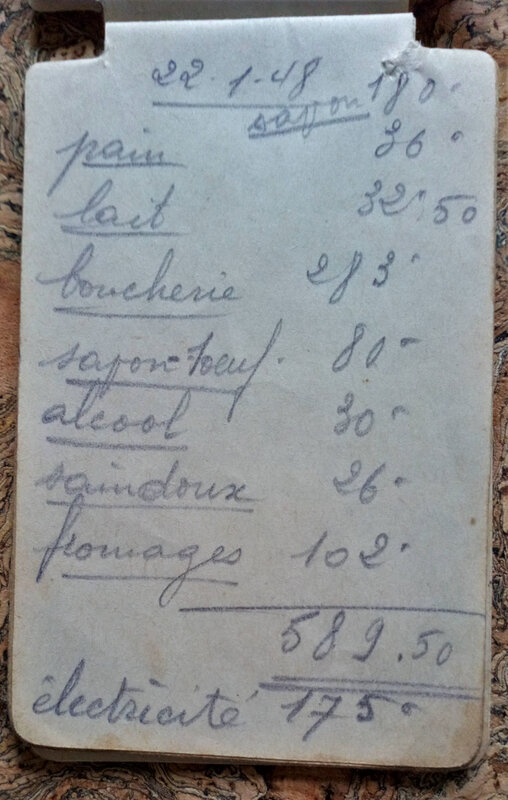 22-1-48 180-
savon
pain 36-
lait 32,50
boucherie 283-
savon-1oeuf. 80-
alcool 30-
saindoux 26-
fromages 102-
589.50
électricité 175-